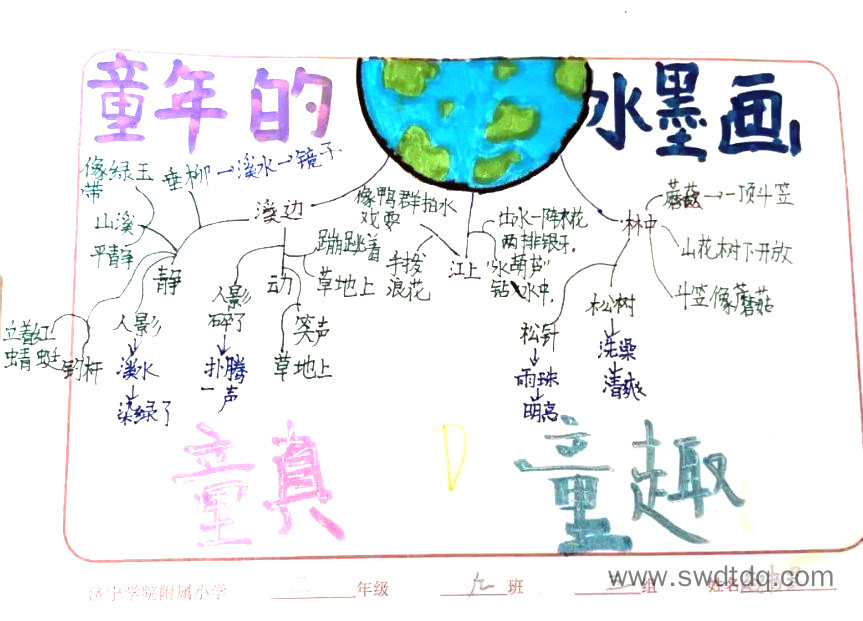 童年的
水墨画
像绿玉
带
垂柳→溪水→镜子
山溪
平静
静
溪边
立着红
蜻蜓
钓杆
人影
溪水
染绿了
动
人影
碎了
扑腾
一声
蹦跳着
草地上
笑声
草地上
江上
像鸭群拍水
戏耍
手拨
浪花
出水一阵水花
两排银牙.
"水葫芦"
钻入水中.
林中
蘑菇→一顶斗笠
山花树下开放
斗笠像蘑菇
松树
洗澡
清爽
松针
雨珠
明亮
童真
D
童趣
济宁学院附属小学
年级
九班
组
姓名
www.swdtdq.com